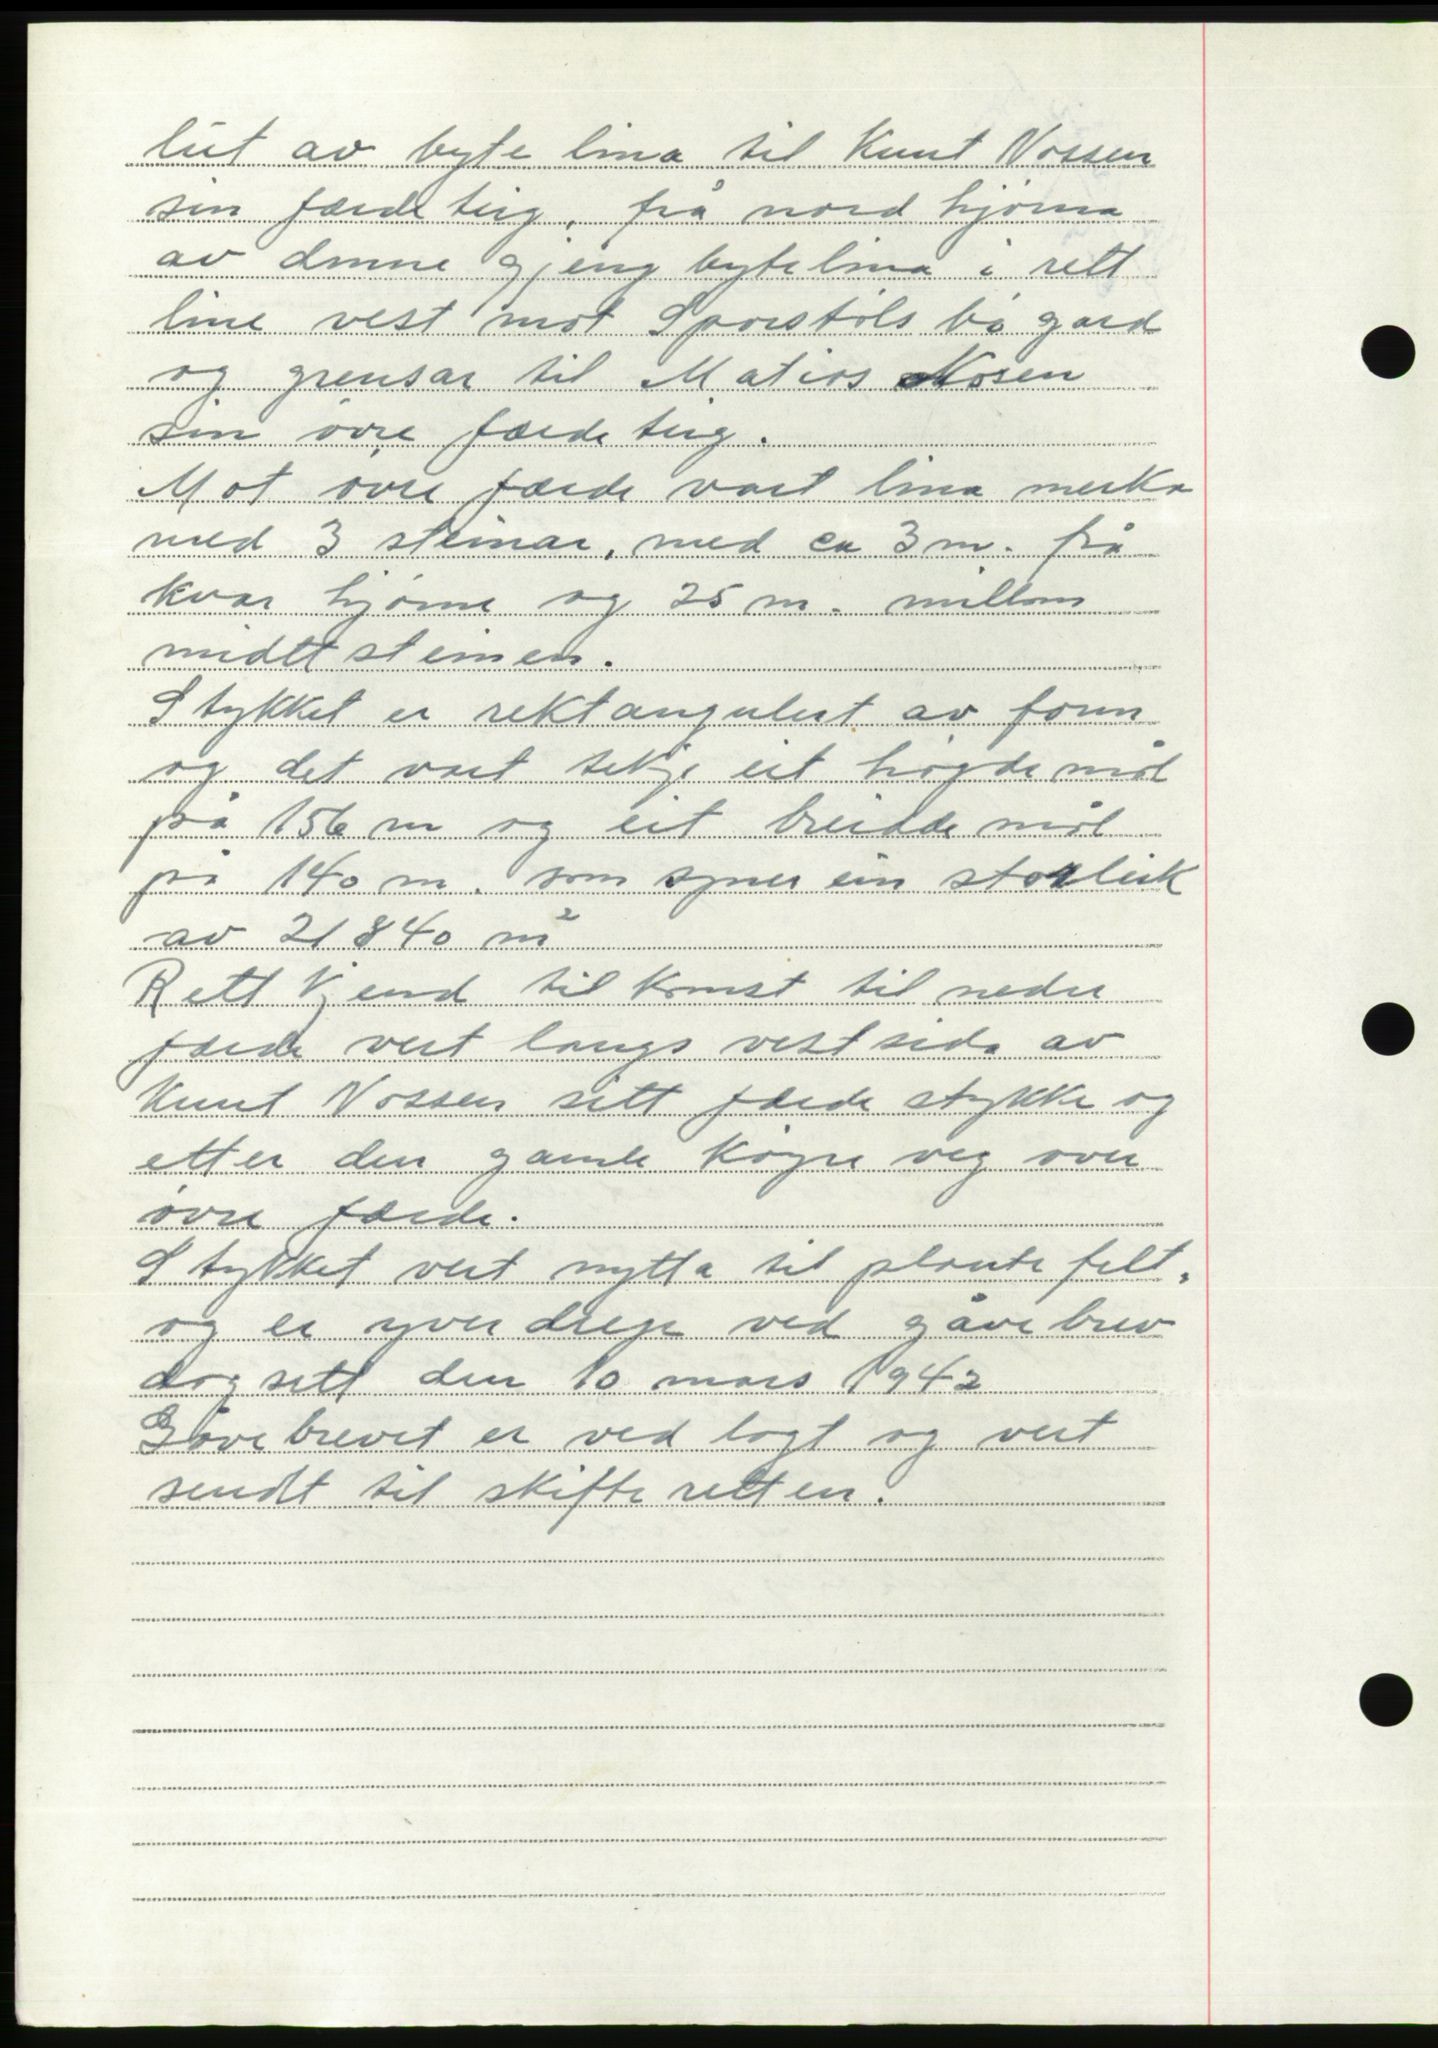 lut av byte lina til Knut Nossen
sin færde teig, frå nord hjörna
av denne gjeng byte lina i rett
line vest mot Sporstöls bö gard
og grensar til Matias Nosen
sin övre færde teig.
Mot övre færde vart lina merka
med 3 steinar, med ca 3 m. frå
kvar hjörne og 25 m. millom
midtsteinen.
Stykket er rektangulert av form
og det vart tekje eit högde mål
på 156 m og eit breidde mål
på 140 m. som syner ein storleik
av 21840 m²
Rett kjend tilkomst til nedre
færde vert langs vestsida av
Knut Nossen sitt færde stykke og
etter den gamle köyre veg over
övre færde.
Stykket vert nytta til plante felt,
og er yver dregje ved gåve brev
dagsett den 10 mars 1942
Gåve brevet er ved lagt og vert
sendt til skifte retten.